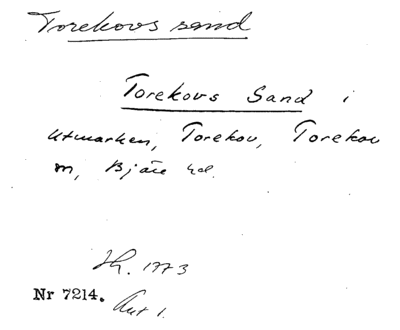 Torekovs sand
Torekovs Sand i
Utmarken, Torekov, Torekov
m, Bjäre hd.
1773
Nr 7214.
Akt 1.